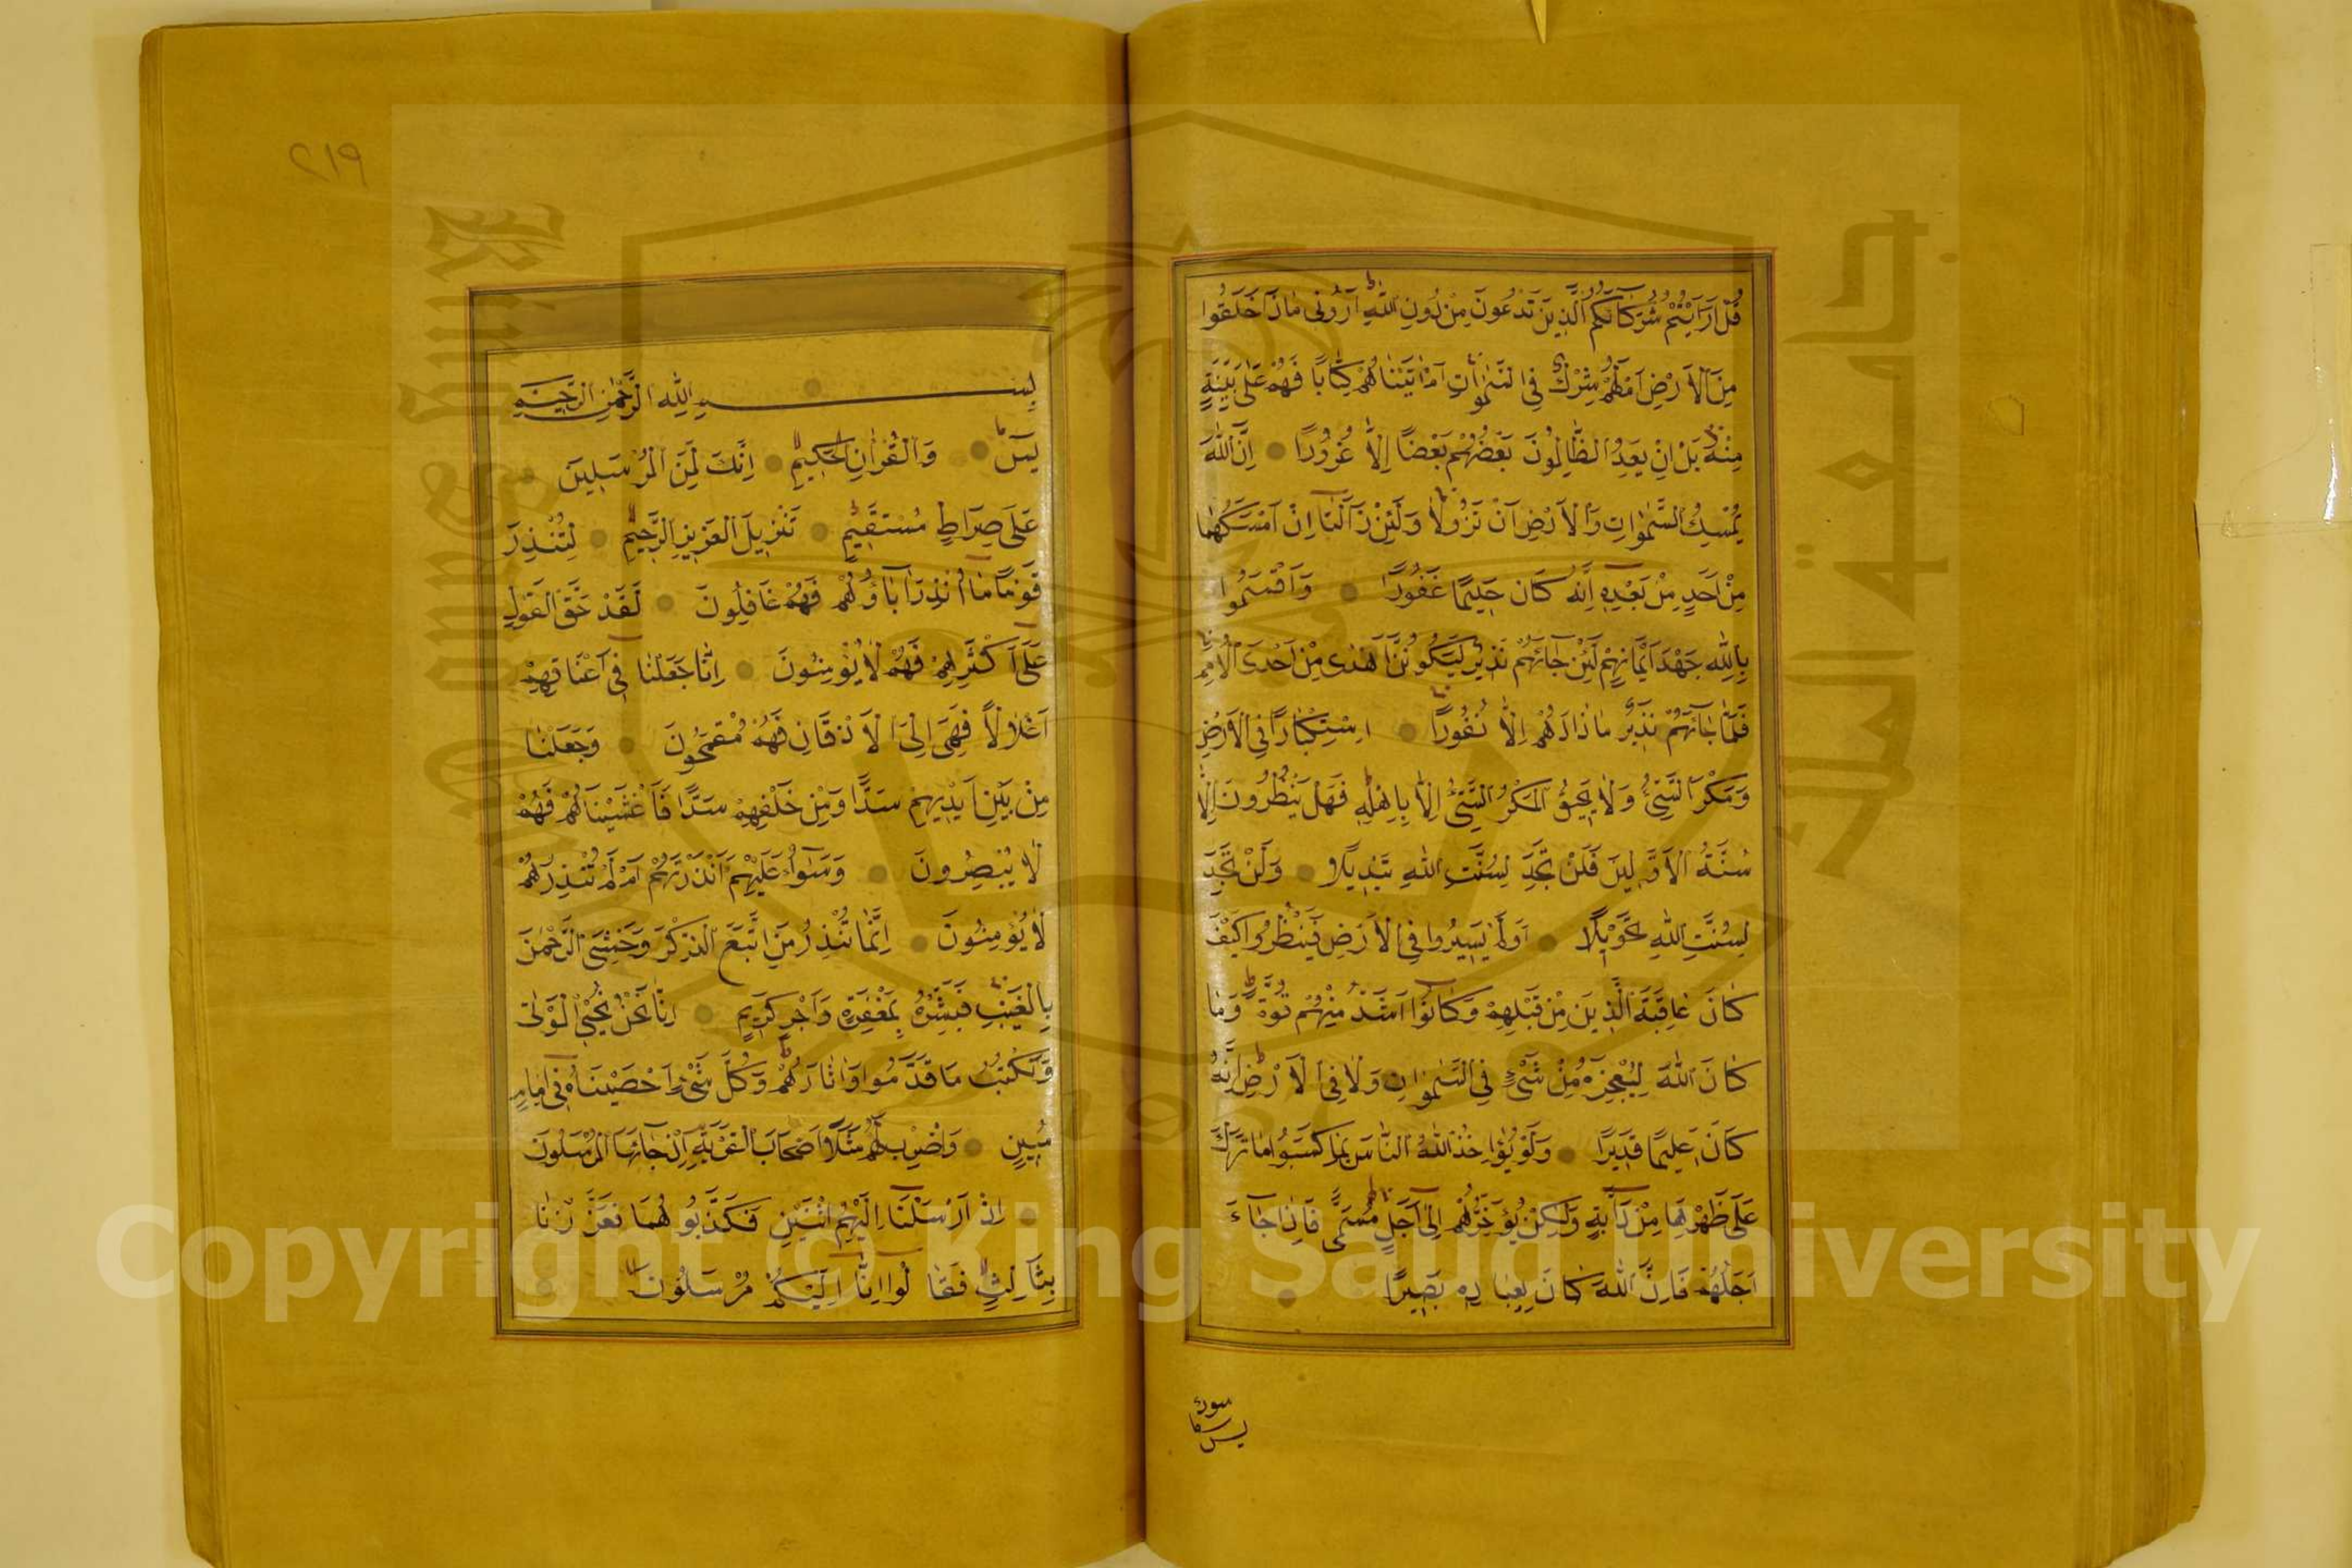 قُلْ اَرَاَيْتُمْ شُرَكَآئَكُمُ الَّذِينَ تَدْعُونَ مِنْ دُونِ اللّٰهِ اَرُونِى مَاذَا خَلَقُوا
مِنَ الْاَرْضِ اَمْ لَهُمْ شِرْكٌ فِى السَّمٰوَاتِ اَمْ اٰتَيْنَاهُمْ كِتَابًا فَهُمْ عَلٰى بَيِّنَةٍ
مِنْهُ بَلْ اِنْ يَعِدُ الظَّالِمُونَ بَعْضُهُمْ بَعْضًا اِلَّا غُرُورًا اِنَّ اللّٰهَ
يُمْسِكُ السَّمٰوَاتِ وَالْاَرْضَ اَنْ تَزُولَا وَلَئِنْ زَالَتَا اِنْ اَمْسَكَهُمَا
مِنْ اَحَدٍ مِنْ بَعْدِهِ اِنَّهُ كَانَ حَلِيمًا غَفُورًا وَاَقْسَمُوا
بِاللّٰهِ جَهْدَ اَيْمَانِهِمْ لَئِنْ جَآئَهُمْ نَذِيرٌ لَيَكُونُنَّ اَهْدٰى مِنْ اِحْدَى الْاُمَمِ
فَلَمَّا جَآئَهُمْ نَذِيرٌ مَازَادَهُمْ اِلَّا نُفُورًا اِسْتِكْبَارًا فِى الْاَرْضِ
وَمَكْرَ السَّيِّئِ وَلَا يَحِيقُ الْمَكْرُ السَّيِّئُ اِلَّا بِاَهْلِهِ فَهَلْ يَنْظُرُونَ اِلَّا
سُنَّةَ الْاَوَّلِينَ فَلَنْ تَجِدَ لِسُنَّتِ اللّٰهِ تَبْدِيلًا وَلَنْ تَجِدَ
لِسُنَّتِ اللّٰهِ تَحْوِيلًا اَوَلَمْ يَسِيرُوا فِى الْاَرْضِ فَيَنْظُرُوا كَيْفَ
كَانَ عَاقِبَةُ الَّذِينَ مِنْ قَبْلِهِمْ وَكَانُوا اَشَدَّ مِنْهُمْ قُوَّةً وَمَا
كَانَ اللّٰهُ لِيُعْجِزَهُ مِنْ شَيْءٍ فِى السَّمٰوَاتِ وَلَا فِى الْاَرْضِ اِنَّهُ
كَانَ عَلِيمًا قَدِيرًا وَلَوْ يُؤَاخِذُ اللّٰهُ النَّاسَ بِمَا كَسَبُوا مَا تَرَكَ
عَلٰى ظَهْرِهَا مِنْ دَآبَّةٍ وَلٰكِنْ يُؤَخِّرُهُمْ اِلٰى اَجَلٍ مُسَمًّى فَاِذَا جَآءَ
اَجَلُهُمْ فَاِنَّ اللّٰهَ كَانَ بِعِبَادِهِ بَصِيرًا
سورة
يس
٢١٩
بِسْمِ اللّٰهِ الرَّحْمٰنِ الرَّحِيمِ
يٰسٓ وَالْقُرْاٰنِ الْحَكِيمِ اِنَّكَ لَمِنَ الْمُرْسَلِينَ
عَلٰى صِرَاطٍ مُسْتَقِيمٍ تَنْزِيلَ الْعَزِيزِ الرَّحِيمِ لِتُنْذِرَ
قَوْمًا مَا اُنْذِرَ اٰبَاؤُهُمْ فَهُمْ غَافِلُونَ لَقَدْ حَقَّ الْقَوْلُ
عَلٰى اَكْثَرِهِمْ فَهُمْ لَا يُؤْمِنُونَ اِنَّا جَعَلْنَا فِى اَعْنَاقِهِمْ
اَغْلَالًا فَهِىَ اِلَى الْاَذْقَانِ فَهُمْ مُقْمَحُونَ وَجَعَلْنَا
مِنْ بَيْنِ اَيْدِيهِمْ سَدًّا وَمِنْ خَلْفِهِمْ سَدًّا فَاَغْشَيْنَاهُمْ فَهُمْ
لَا يُبْصِرُونَ وَسَوَآءٌ عَلَيْهِمْ ءَاَنْذَرْتَهُمْ اَمْ لَمْ تُنْذِرْهُمْ
لَا يُؤْمِنُونَ اِنَّمَا تُنْذِرُ مَنِ اتَّبَعَ الذِّكْرَ وَخَشِىَ الرَّحْمٰنَ
بِالْغَيْبِ فَبَشِّرْهُ بِمَغْفِرَةٍ وَاَجْرٍ كَرِيمٍ اِنَّا نَحْنُ نُحْيِى الْمَوْتٰى
وَنَكْتُبُ مَا قَدَّمُوا وَاٰثَارَهُمْ وَكُلَّ شَىْءٍ اَحْصَيْنَاهُ فِى اِمَامٍ
مُبِينٍ وَاضْرِبْ لَهُمْ مَثَلًا اَصْحَابَ الْقَرْيَةِ اِذْ جَآئَهَا الْمُرْسَلُونَ
اِذْ اَرْسَلْنَا اِلَيْهِمُ اثْنَيْنِ فَكَذَّبُوهُمَا فَعَزَّزْنَا
بِثَالِثٍ فَقَالُوا اِنَّا اِلَيْكُمْ مُرْسَلُونَ
King Saud University
جامعة الملك سعود
1957
Copyright © King Saud University